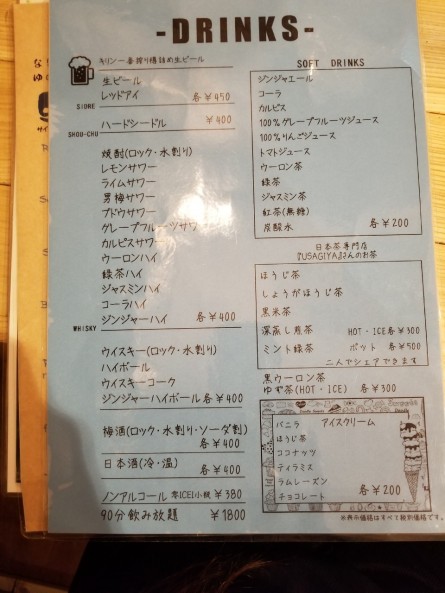 -DRINKS-
キリン一番搾り樽詰め生ビール
生ビール
レッドアイ 各￥450
SIDRE
ハードシードル ￥400
SHOU-CHU
焼酎(ロック・水割り)
レモンサワー
ライムサワー
男梅サワー
ブドウサワー
グレープフルーツサワー
カルピスサワー
ウーロンハイ
緑茶ハイ
ジャスミンハイ
コーラハイ
ジンジャーハイ 各￥400
WHISKY
ウイスキー(ロック・水割り)
ハイボール
ウイスキーコーク
ジンジャーハイボール 各￥400
梅酒(ロック・水割り・ソーダ割)
各￥400
日本酒(冷・温)
各￥400
ノンアルコール 零ICHI小瓶 ￥380
90分飲み放題 ￥1800
SOFT DRINKS
ジンジャエール
コーラ
カルピス
100%グレープフルーツジュース
100%りんごジュース
トマトジュース
ウーロン茶
緑茶
ジャスミン茶
紅茶(無糖)
炭酸水 各￥200
日本茶専門店
『USAGIYA』さんのお茶
ほうじ茶
しょうがほうじ茶
黒米茶
深蒸し煎茶 HOT・ICE各￥300
ミント緑茶 ポット 各￥500
二人でシェアできます
黒ウーロン茶
ゆず茶(HOT・ICE) 各￥300
アイスクリーム
バニラ
ほうじ茶
ココナッツ
ティラミス
ラムレーズン
チョコレート 各￥200
※表示価格はすべて税別価格です。